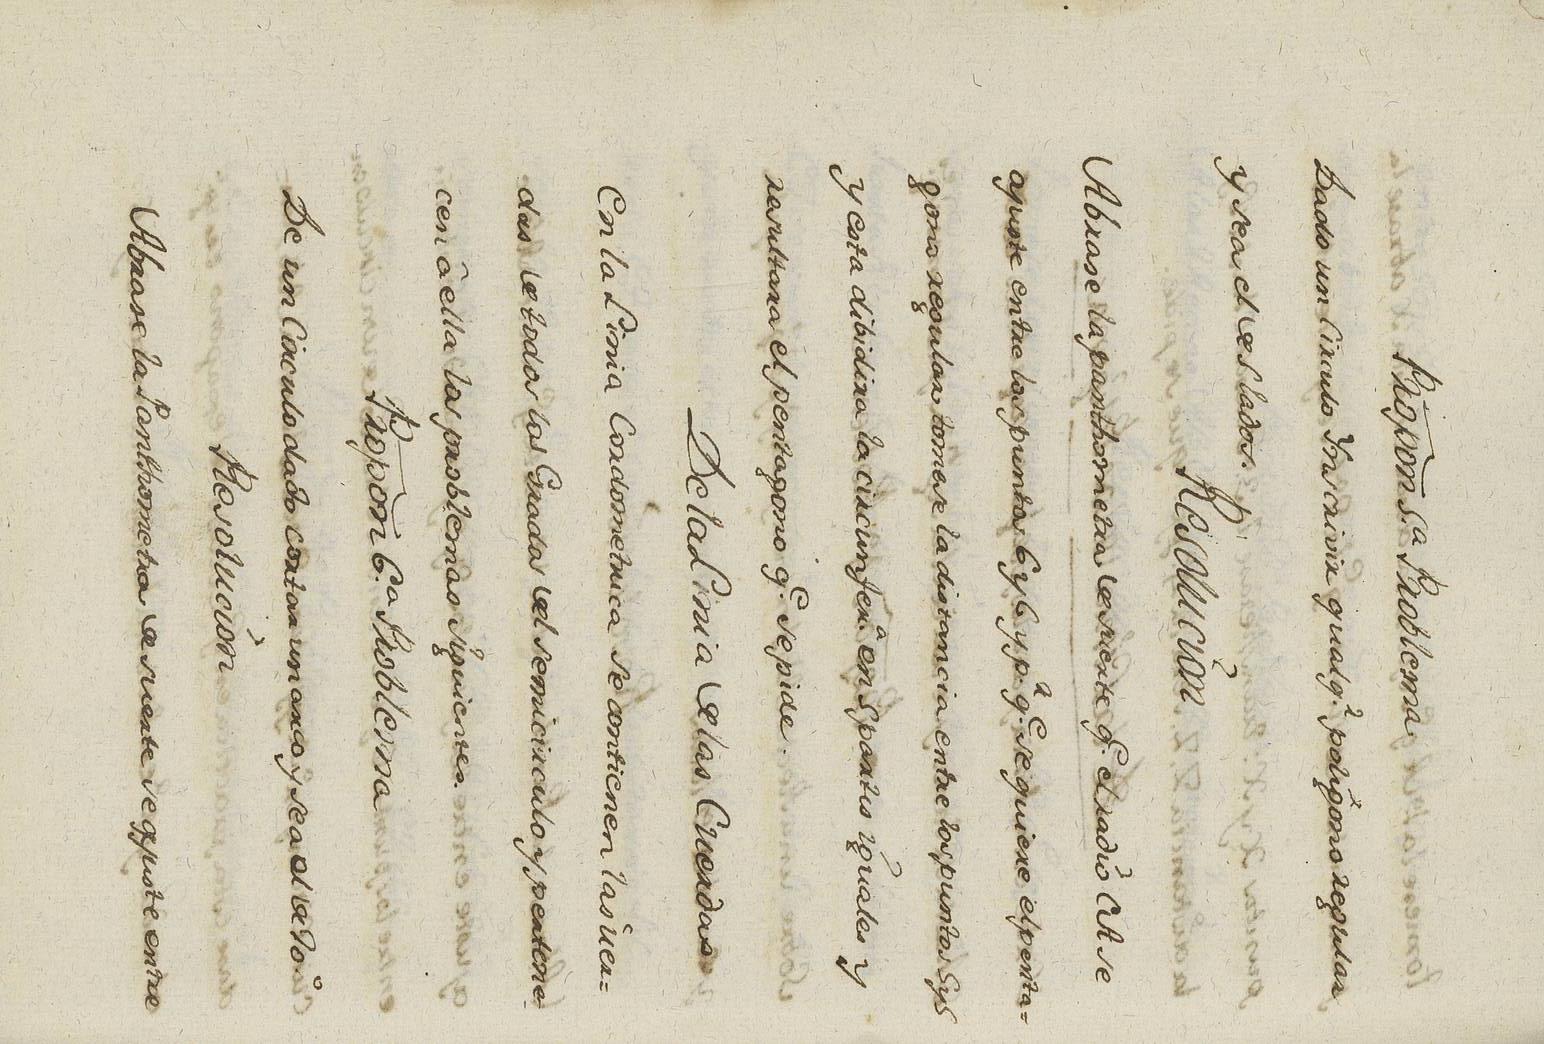 Propon 5.a Problema
Dado un Circulo Ynscrivir qualq.a poligono regular
y sea el de 5 lados.
Resolución
Abrase la panthometra de suerte q.e el radio CA se
ajuste entre los puntos 6 y 6 y p.a q.e se quiere el penta=
gono regular tomese la distancia entre los puntos 5 y 5
y esta dibidira la circunfer.a en 5 partes yguales y
resultara el pentagono q.e se pide.
De la Linia de las Cuerdas
En la Linia Cordometrica se contienen las cuer=
das de todos los Grados del semicirculo y pertene-
cen â ella los problemas siguientes.
Propon 6.a Problema
De un Circulo dado cortar un arco y sea el de 70.°
Resolución
Abrase la Panthometra de suerte se ajuste entre